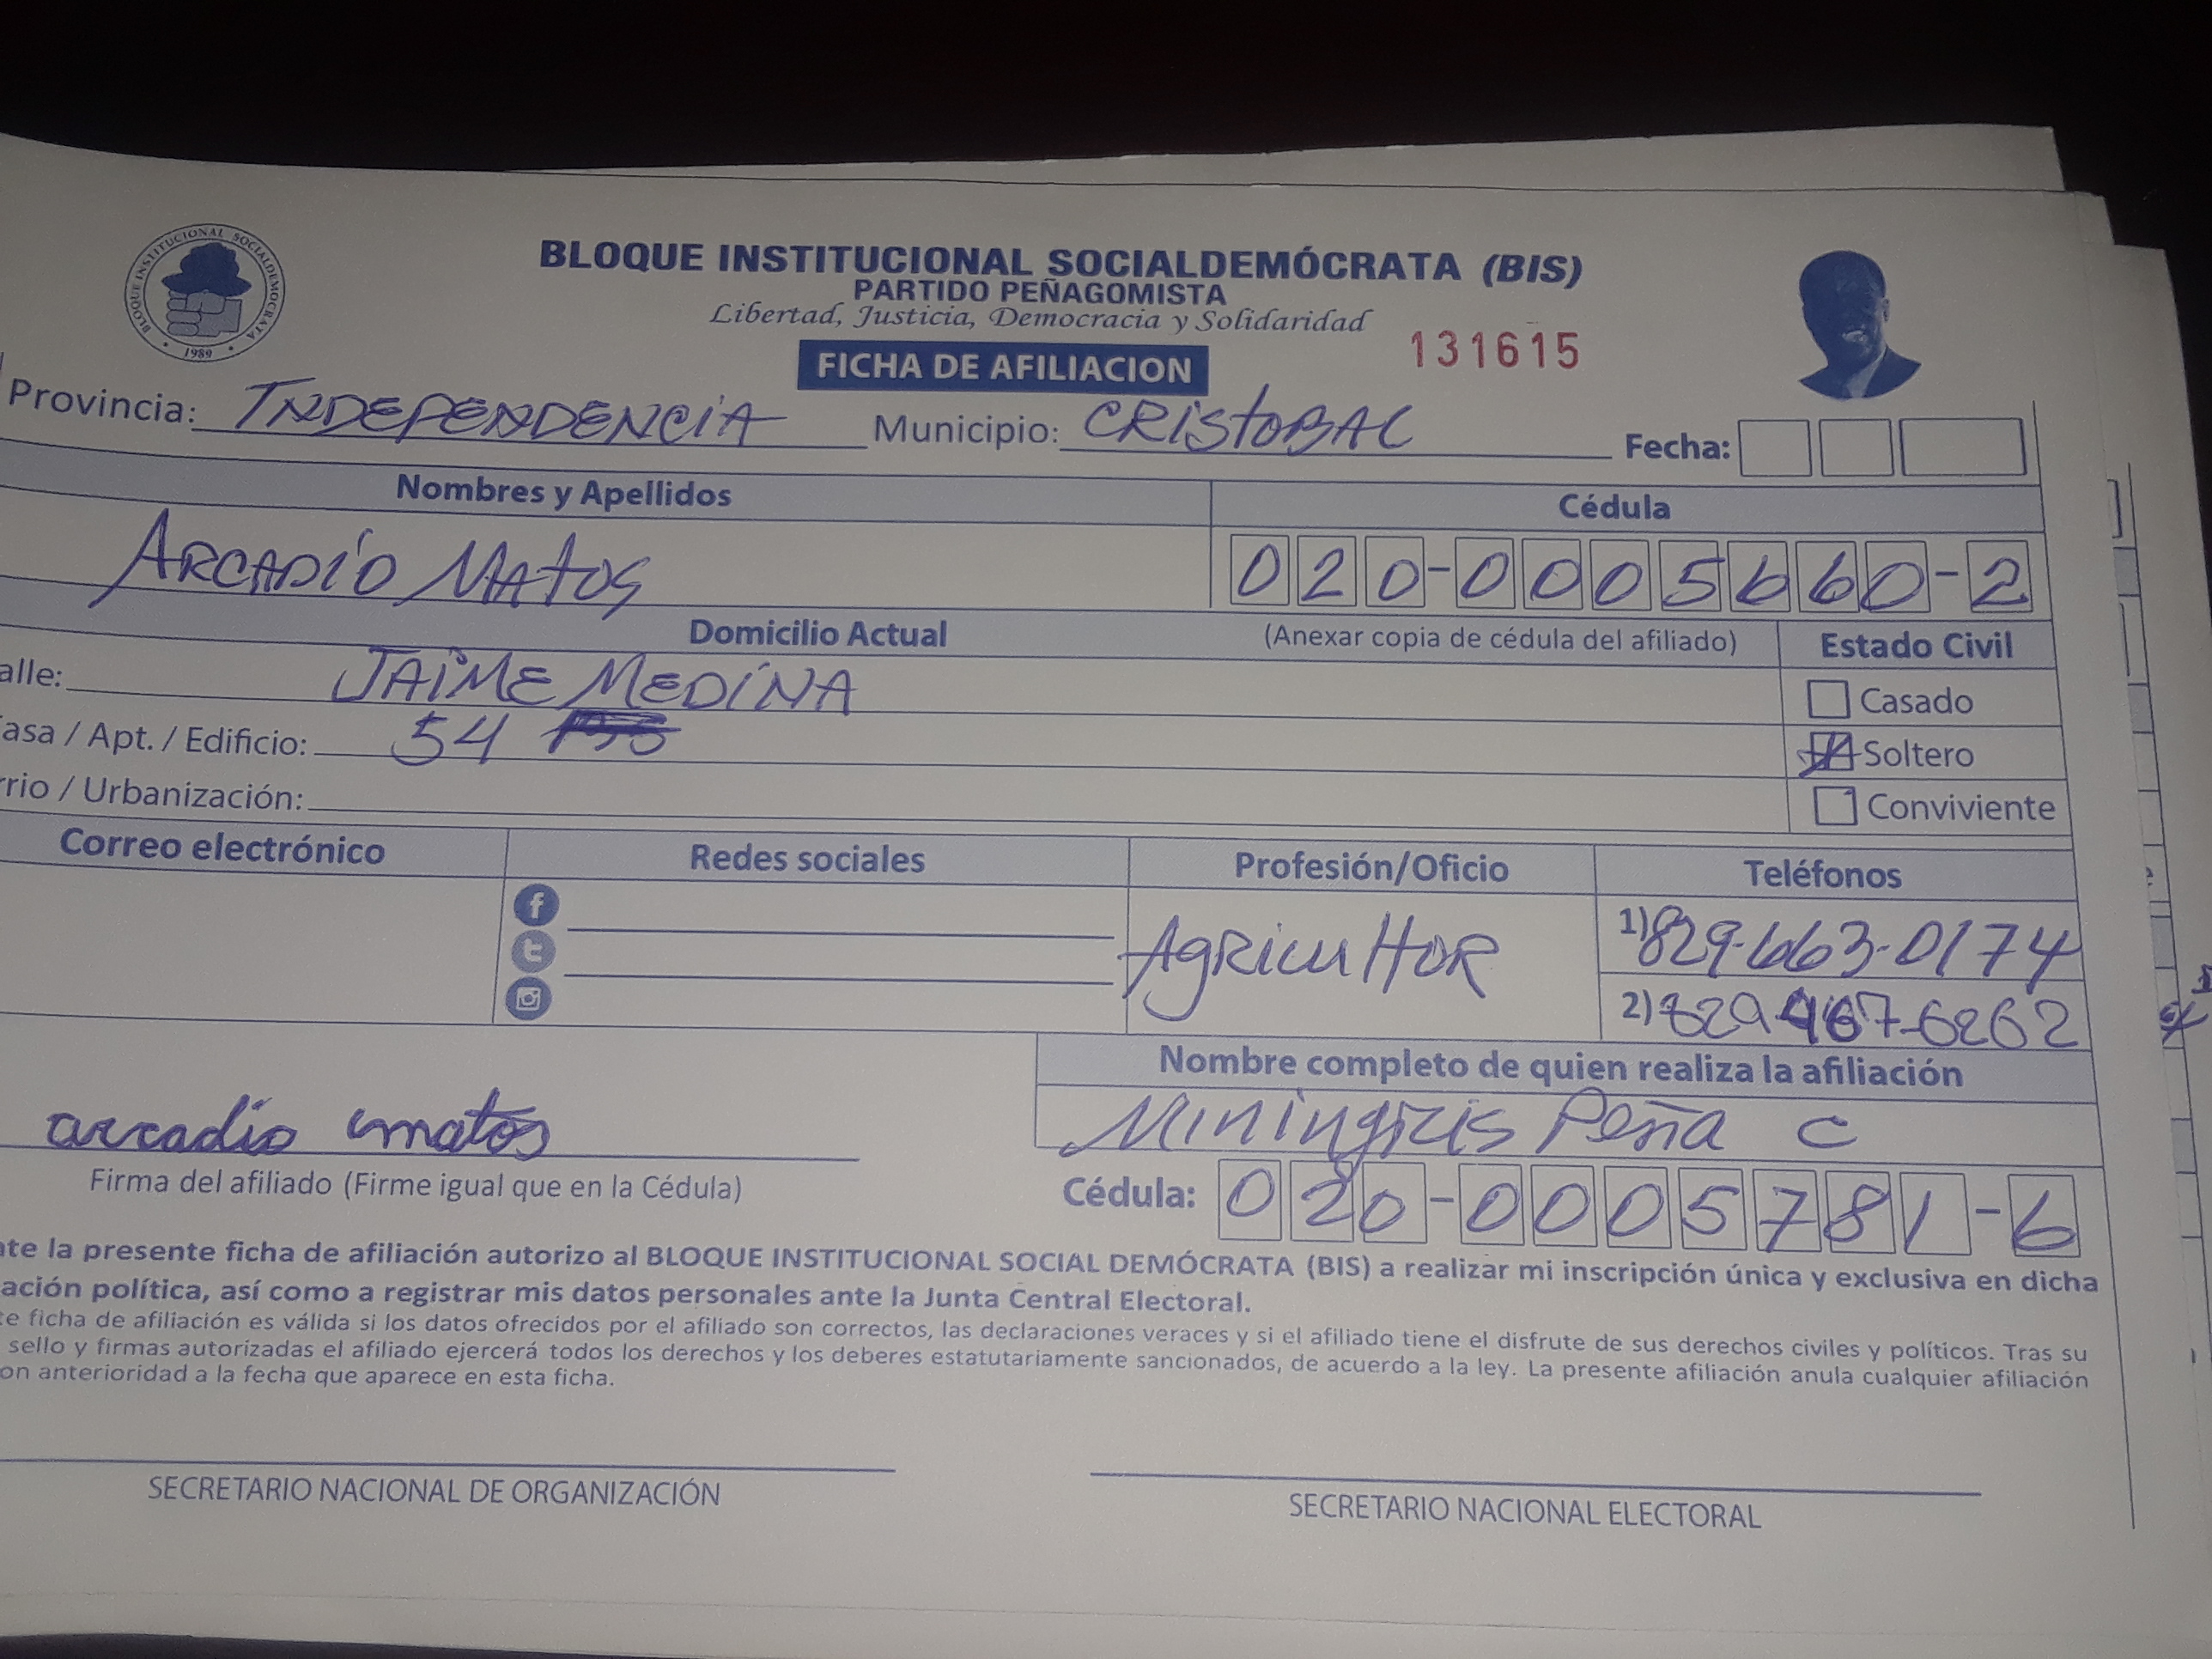 BLOQUE INSTITUCIONAL SOCIALDEMOCRATA
1989
BLOQUE INSTITUCIONAL SOCIALDEMÓCRATA (BIS)
PARTIDO PEÑAGOMISTA
Libertad, Justicia, Democracia y Solidaridad
131615
FICHA DE AFILIACION
Provincia: INDEPENDENCIA Municipio: CRISTOBAL Fecha:
Nombres y Apellidos Cédula
ARCADIO MATOS 020-0005660-2
Domicilio Actual (Anexar copia de cédula del afiliado) Estado Civil
alle: JAIME MEDINA
Casado
asa / Apt. / Edificio: 54
Soltero
rrio / Urbanización:
Conviviente
Correo electrónico Redes sociales Profesión/Oficio Teléfonos
AgRicultOR
1) 829-663-0174
2) 829-467-6262
Nombre completo de quien realiza la afiliación
arcadio matos
Peña C
Firma del afiliado (Firme igual que en la Cédula)
Cédula: 020-0005781-6
te la presente ficha de afiliación autorizo al BLOQUE INSTITUCIONAL SOCIAL DEMÓCRATA (BIS) a realizar mi inscripción única y exclusiva en dicha
ación política, así como a registrar mis datos personales ante la Junta Central Electoral.
te ficha de afiliación es válida si los datos ofrecidos por el afiliado son correctos, las declaraciones veraces y si el afiliado tiene el disfrute de sus derechos civiles y políticos. Tras su
sello y firmas autorizadas el afiliado ejercerá todos los derechos y los deberes estatutariamente sancionados, de acuerdo a la ley. La presente afiliación anula cualquier afiliación
on anterioridad a la fecha que aparece en esta ficha.
SECRETARIO NACIONAL DE ORGANIZACIÓN
SECRETARIO NACIONAL ELECTORAL